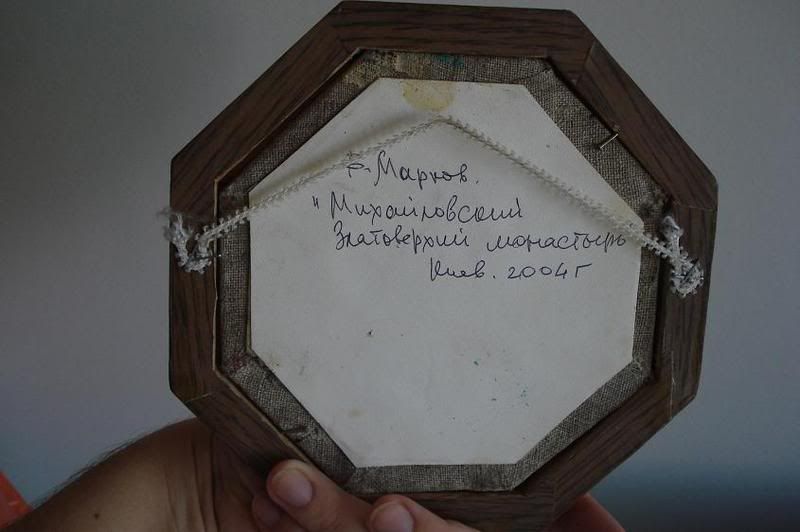 Марков.
"Михайловский
Златоверхий монастырь
Киев. 2004г